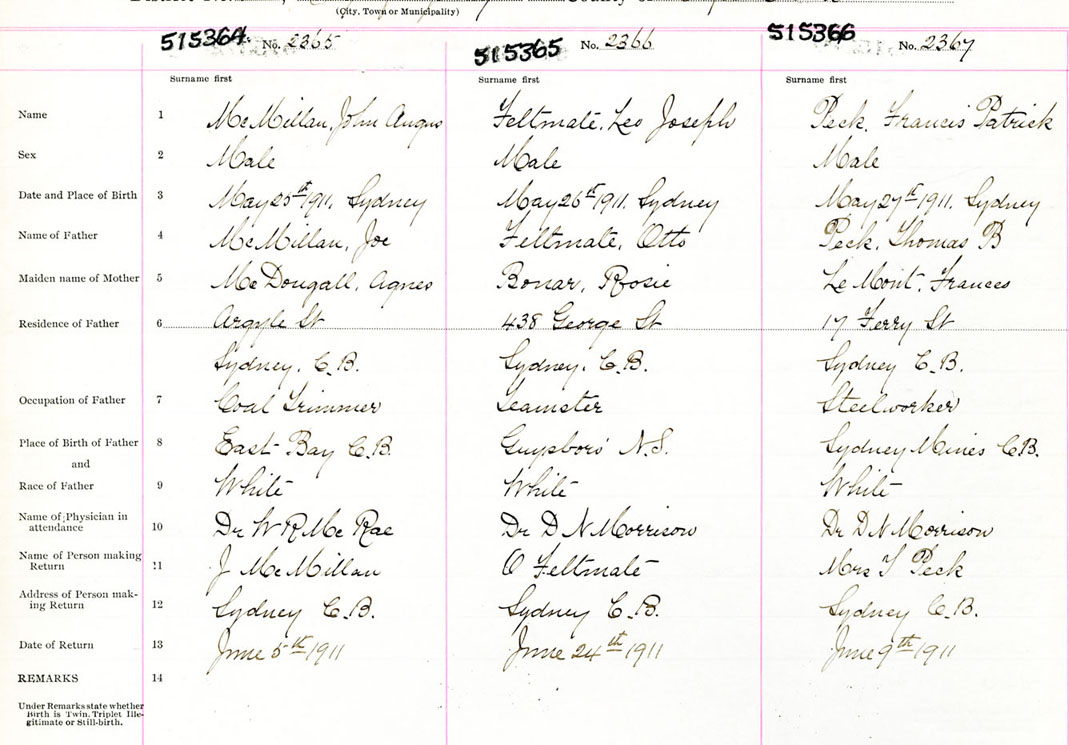 (City, Town or Municipality)
515364 No. 2365 515365 No. 2366 515366 No. 2367
Surname first Surname first Surname first
Name 1 McMillan, John Angus Feltmate, Leo Joseph Peck, Francis Patrick
Sex 2 Male Male Male
Date and Place of Birth 3 May 25th 1911, Sydney May 26th 1911, Sydney May 27th 1911, Sydney
Name of Father 4 McMillan, Joe Feltmate, Otto Peck, Thomas B
Maiden name of Mother 5 McDougall, Agnes Bonar, Rosie Le Mont, Frances
Residence of Father 6 Argyle St 438 George St 17 Ferry St
Sydney, C.B. Sydney, C.B. Sydney C.B.
Occupation of Father 7 Coal Trimmer Teamster Steelworker
Place of Birth of Father 8 East Bay C.B. Guysboro' N.S. Sydney Mines C.B.
and
Race of Father 9 White White White
Name of Physician in
attendance 10 Dr W R McRae Dr D N Morrison Dr D N Morrison
Name of Person making
Return 11 J McMillan O Feltmate Mrs T Peck
Address of Person mak-
ing Return 12 Sydney C.B. Sydney C.B. Sydney C.B.
Date of Return 13 June 5th 1911 June 24th 1911 June 9th 1911
REMARKS 14
Under Remarks state whether
Birth is Twin, Triplet Ille-
gitimate or Still-birth.